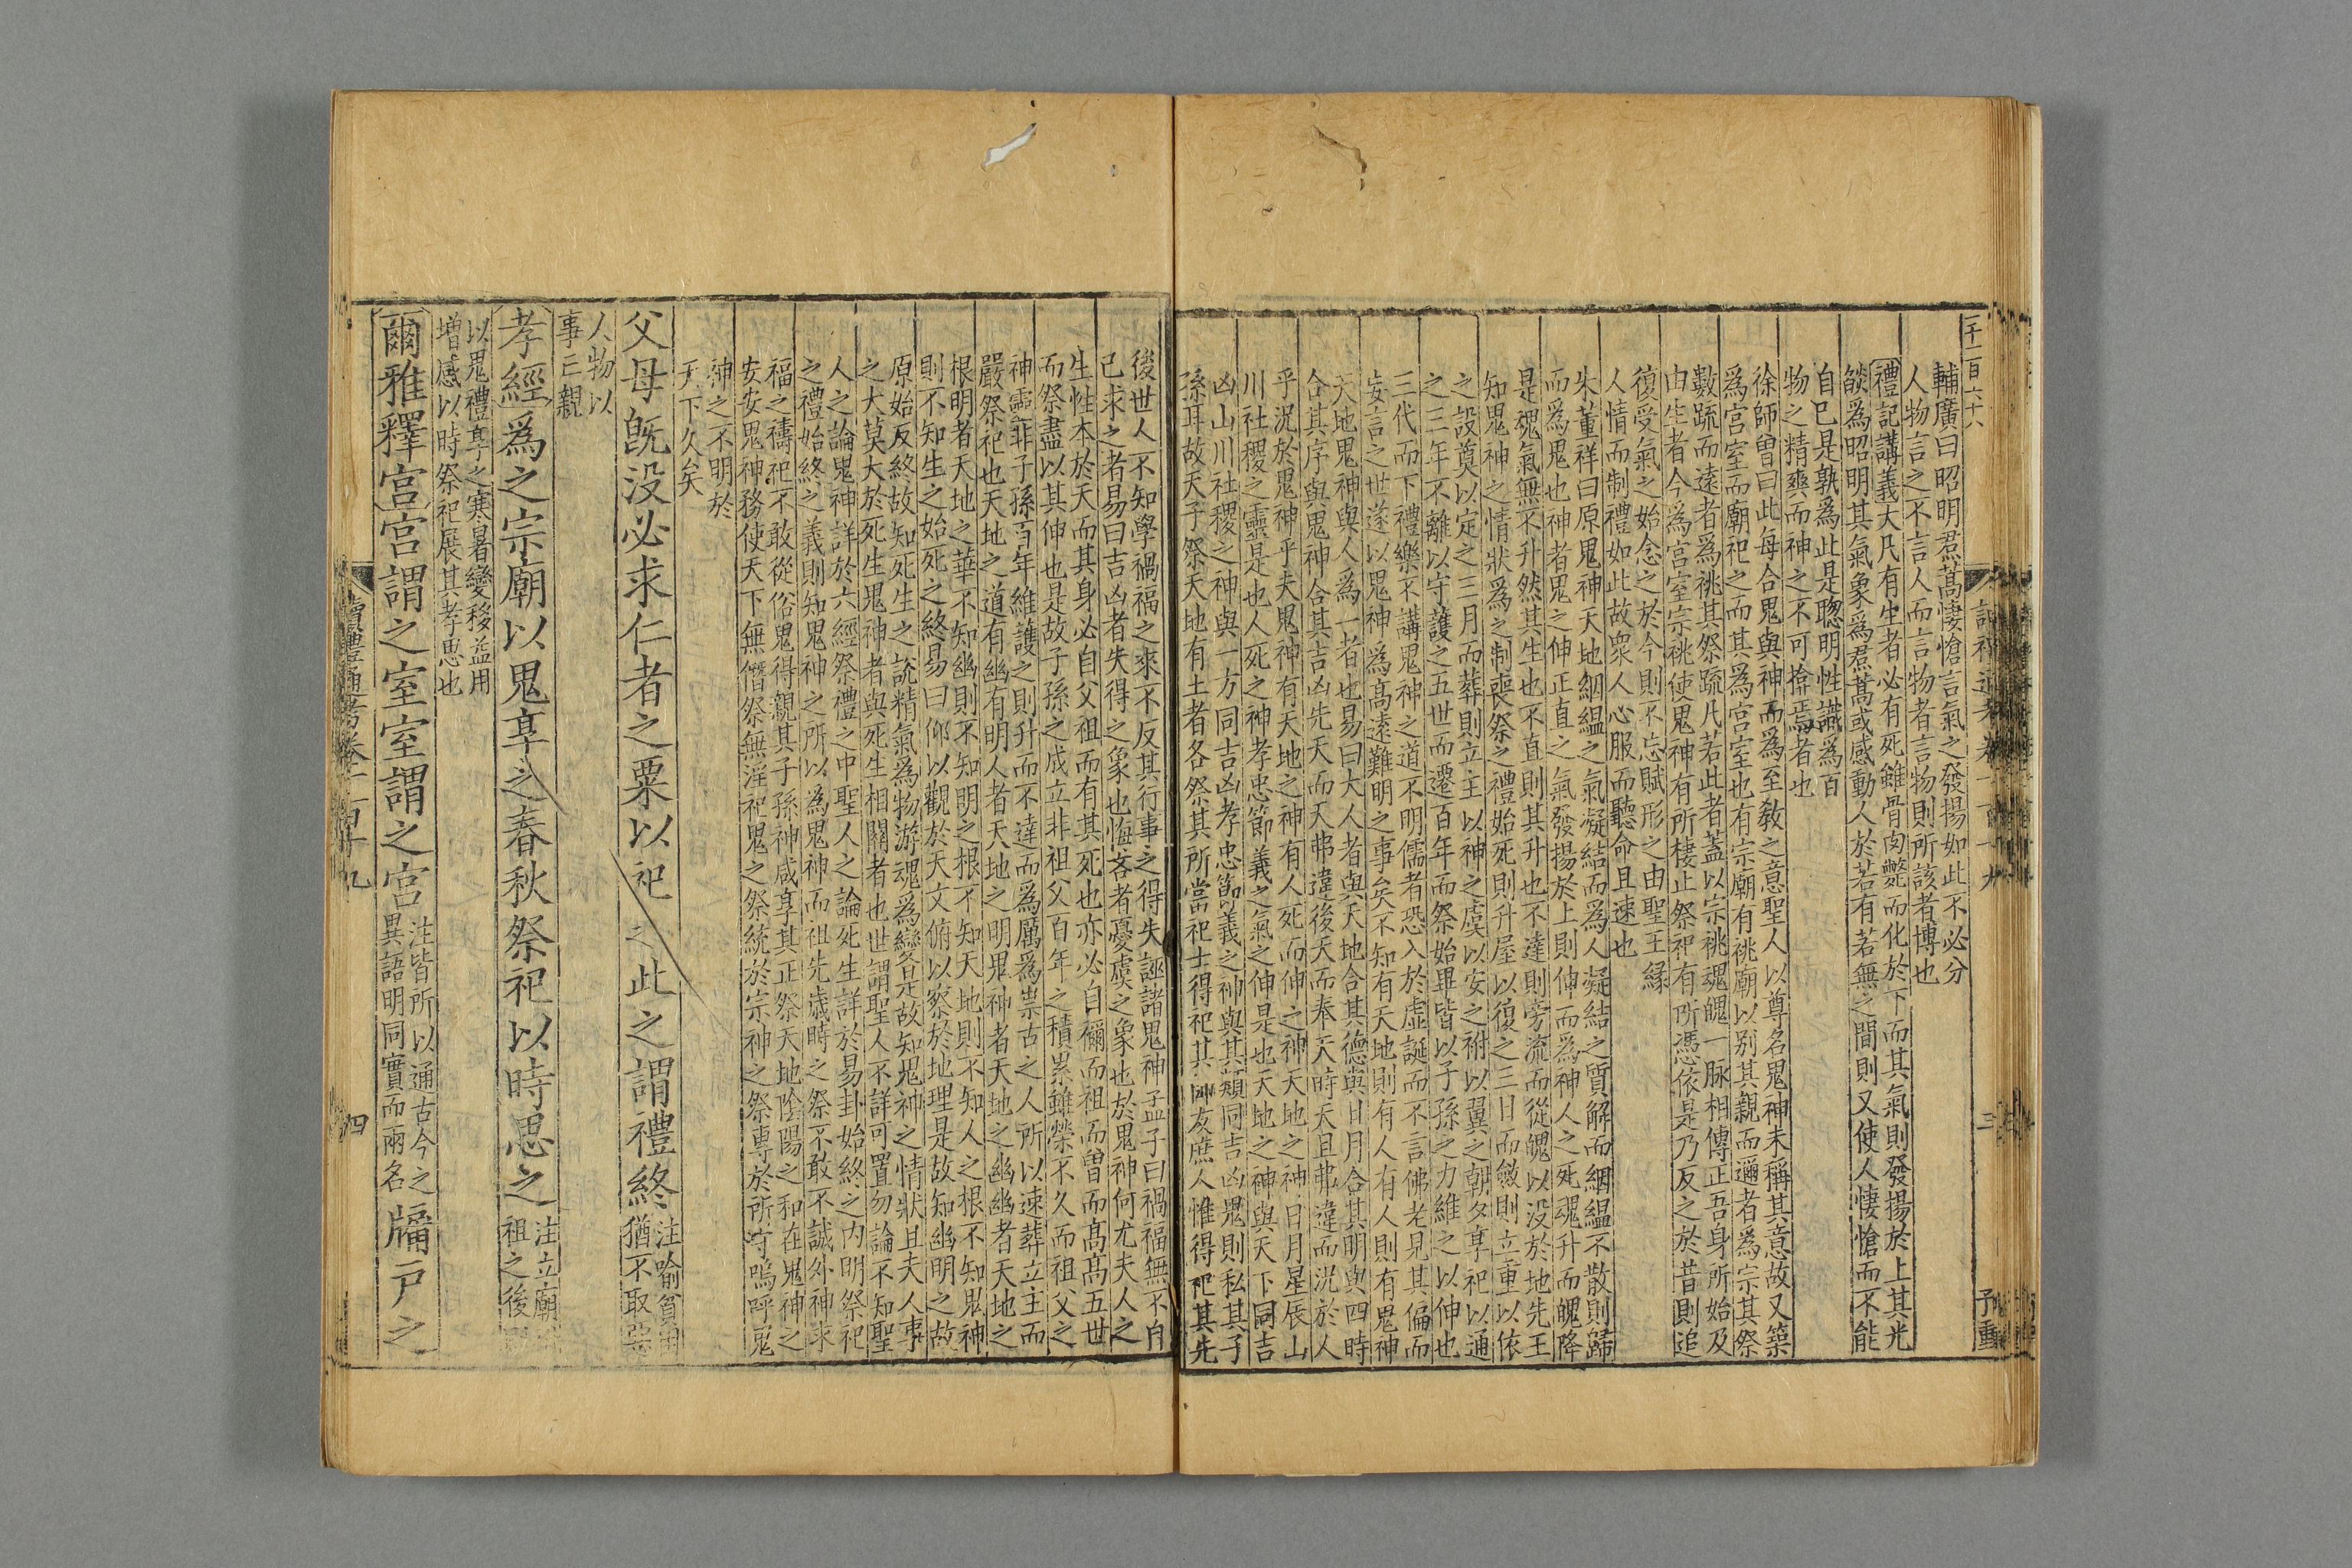 輔廣曰昭明焄蒿悽愴言氣之發揚如此不必分
人物言之不言人而言物者言物則所該者博也
禮記講義大凡有生者必有死雖骨肉斃而化於下而其氣則發揚於上其光
燄為昭明其氣象為焄蒿或感動人於若有若無之間則又使人悽愴而不能
自已是孰為此是聰明性識為百
物之精爽而神之不可揜焉者也
徐師曾曰此每合鬼與神而為至教之意聖人以尊名鬼神未稱其意故又築
為宮室而廟祀之而其為宮室也有宗廟有祧廟以别其親而邇者為宗其祭
數疏而遠者為祧其祭疏凡若此者蓋以宗祧魂魄一脉相傳正吾身所始及
由生者今為宮室宗祧使鬼神有所棲止祭祀有所憑依是乃反之於昔則追
復受氣之始念之於今則不忘賦形之由聖王緣
人情而制禮如此故衆人心服而聽命且速也
朱董祥曰原鬼神天地絪緼之氣凝結而為人凝結之質解而絪緼不散則歸
而為鬼也神者鬼之伸正直之氣發揚於上則伸而為神人之死魂升而魄降
是魂氣無不升然其生也不直則其升也不達則旁流而從魄以没於地先王
知鬼神之情狀為之制喪祭之禮始死則升屋以復之三日而斂則立重以依
之設奠以定之三月而葬則立主以神之虞以安之祔以翼之朝夕享祀以通
之三年不離以守護之五世而遷百年而祭始畢皆以子孫之力維之以伸也
三代而下禮樂不講鬼神之道不明儒者恐入於虛誕而不言佛老見其偏而
妄言之世遂以鬼神為高遠難明之事矣不知有天地則有人有人則有鬼神
天地鬼神與人為一者也易曰大人者與天地合其德與日月合其明與四時
合其序與鬼神合其吉凶先天而天弗違後天而奉天時天且弗違而況於人
乎況於鬼神乎夫鬼神有天地之神有人死而伸之神天地之神日月星辰山
川社稷之靈是也人死之神孝忠節義之氣之伸是也天地之神與天下同吉
凶山川社稷之神與一方同吉凶孝忠節義之神與其類同吉凶鬼則私其子
孫耳故天子祭天地有土者各祭其所當祀士得祀其師友庶人惟得祀其先
後世人不知學禍福之來不反其行事之得失誣諸鬼神孟子曰禍福無不自
己求之者易曰吉凶者失得之象也悔吝者憂虞之象也於鬼神何尤夫人之
生性本於天而其身必自父祖而有其死也亦必自禰而祖而曾而高高五世
而祭盡以其伸也是故子孫之成立非祖父百年之積累雖榮不久而祖父之
神靈非子孫百年維護之則升而不達而為厲為祟古之人所以速葬立主而
嚴祭祀也天地之道有幽有明人者天地之明鬼神者天地之幽幽者天地之
根明者天地之華不知幽則不知明之根不知天地則不知人之根不知鬼神
則不知生之始死之終易曰仰以觀於天文俯以察於地理是故知幽明之故
原始反終故知死生之説精氣為物游魂為變是故知鬼神之情狀且夫人事
之大莫大於死生鬼神者與死生相關者也世謂聖人不詳可置勿論不知聖
人之論鬼神詳於六經祭禮之中聖人之論死生詳於易卦始終之内明祭祀
之禮始終之義則知鬼神之所以為鬼神而祖先歲時之祭不敢不誠外神求
福之禱祀不敢從俗鬼得親其子孫神咸享其正祭天地陰陽之和在鬼神之
安安鬼神務使天下無僭祭無淫祀鬼之祭統於宗神之祭專於所守嗚呼鬼
神之不明於
天下久矣
父母旣没必求仁者之粟以祀之此之謂禮終注喻貧困猶不取惡
人物以
事亡親
孝經爲之宗廟以鬼享之春秋祭祀以時思之注立廟祔祖之後
以鬼禮享之寒暑變移益用
增感以時祭祀展其孝思也
爾雅釋宮宮謂之室室謂之宮注皆所以通古今之異語明同實而兩名牖戸之
讀禮通考卷一百十九
四